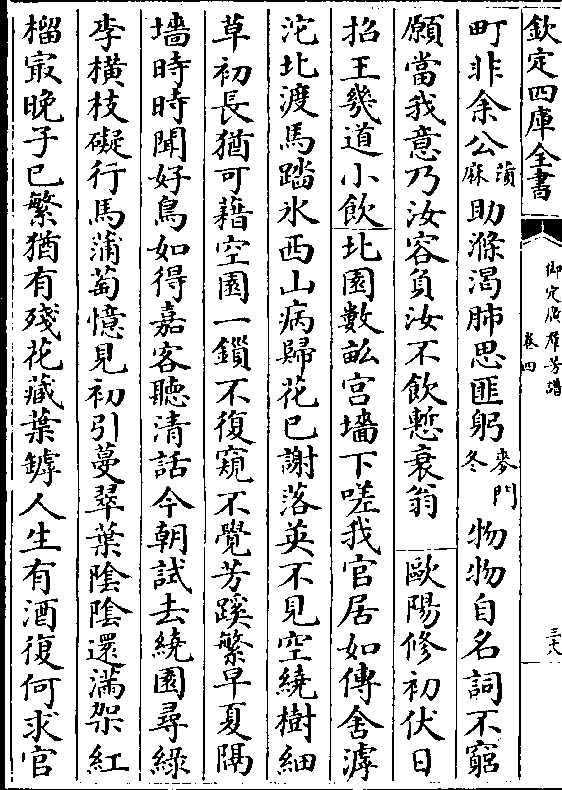 欽定四庫全書
御定廣羣芳譜
卷四
三六
町非余公蕡麻助滌渴肺思匪躬麥門冬物物自名詞不窮
願當我意乃汝容負汝不飲慙衰翁 歐陽修初伏日
招王幾道小飲北園數畝宮墻下嗟我官居如傳舍滹
沱北渡馬踏氷西山病歸花已謝落英不見空繞樹細
草初長猶可藉空園一鎖不復窺不覺芳蹊繁早夏隔
墻時時聞好鳥如得嘉客聽清話今朝試去繞園尋綠
李橫枝礙行馬蒲萄憶見初引蔓翠葉隂隂還滿架紅
榴㝡晚子已繁猶有殘花藏葉罅人生有酒復何求官